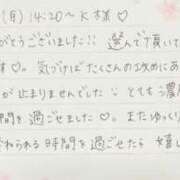 (月) 14:20〜K様♡
がとうございました!! 選んで頂いて
♡。気づけばたくさんの攻めにあ
が止まりませんでした♡ とても濃
時間を過ごせました♡。またゆっくり
われる時間を過ごせたら嬉し